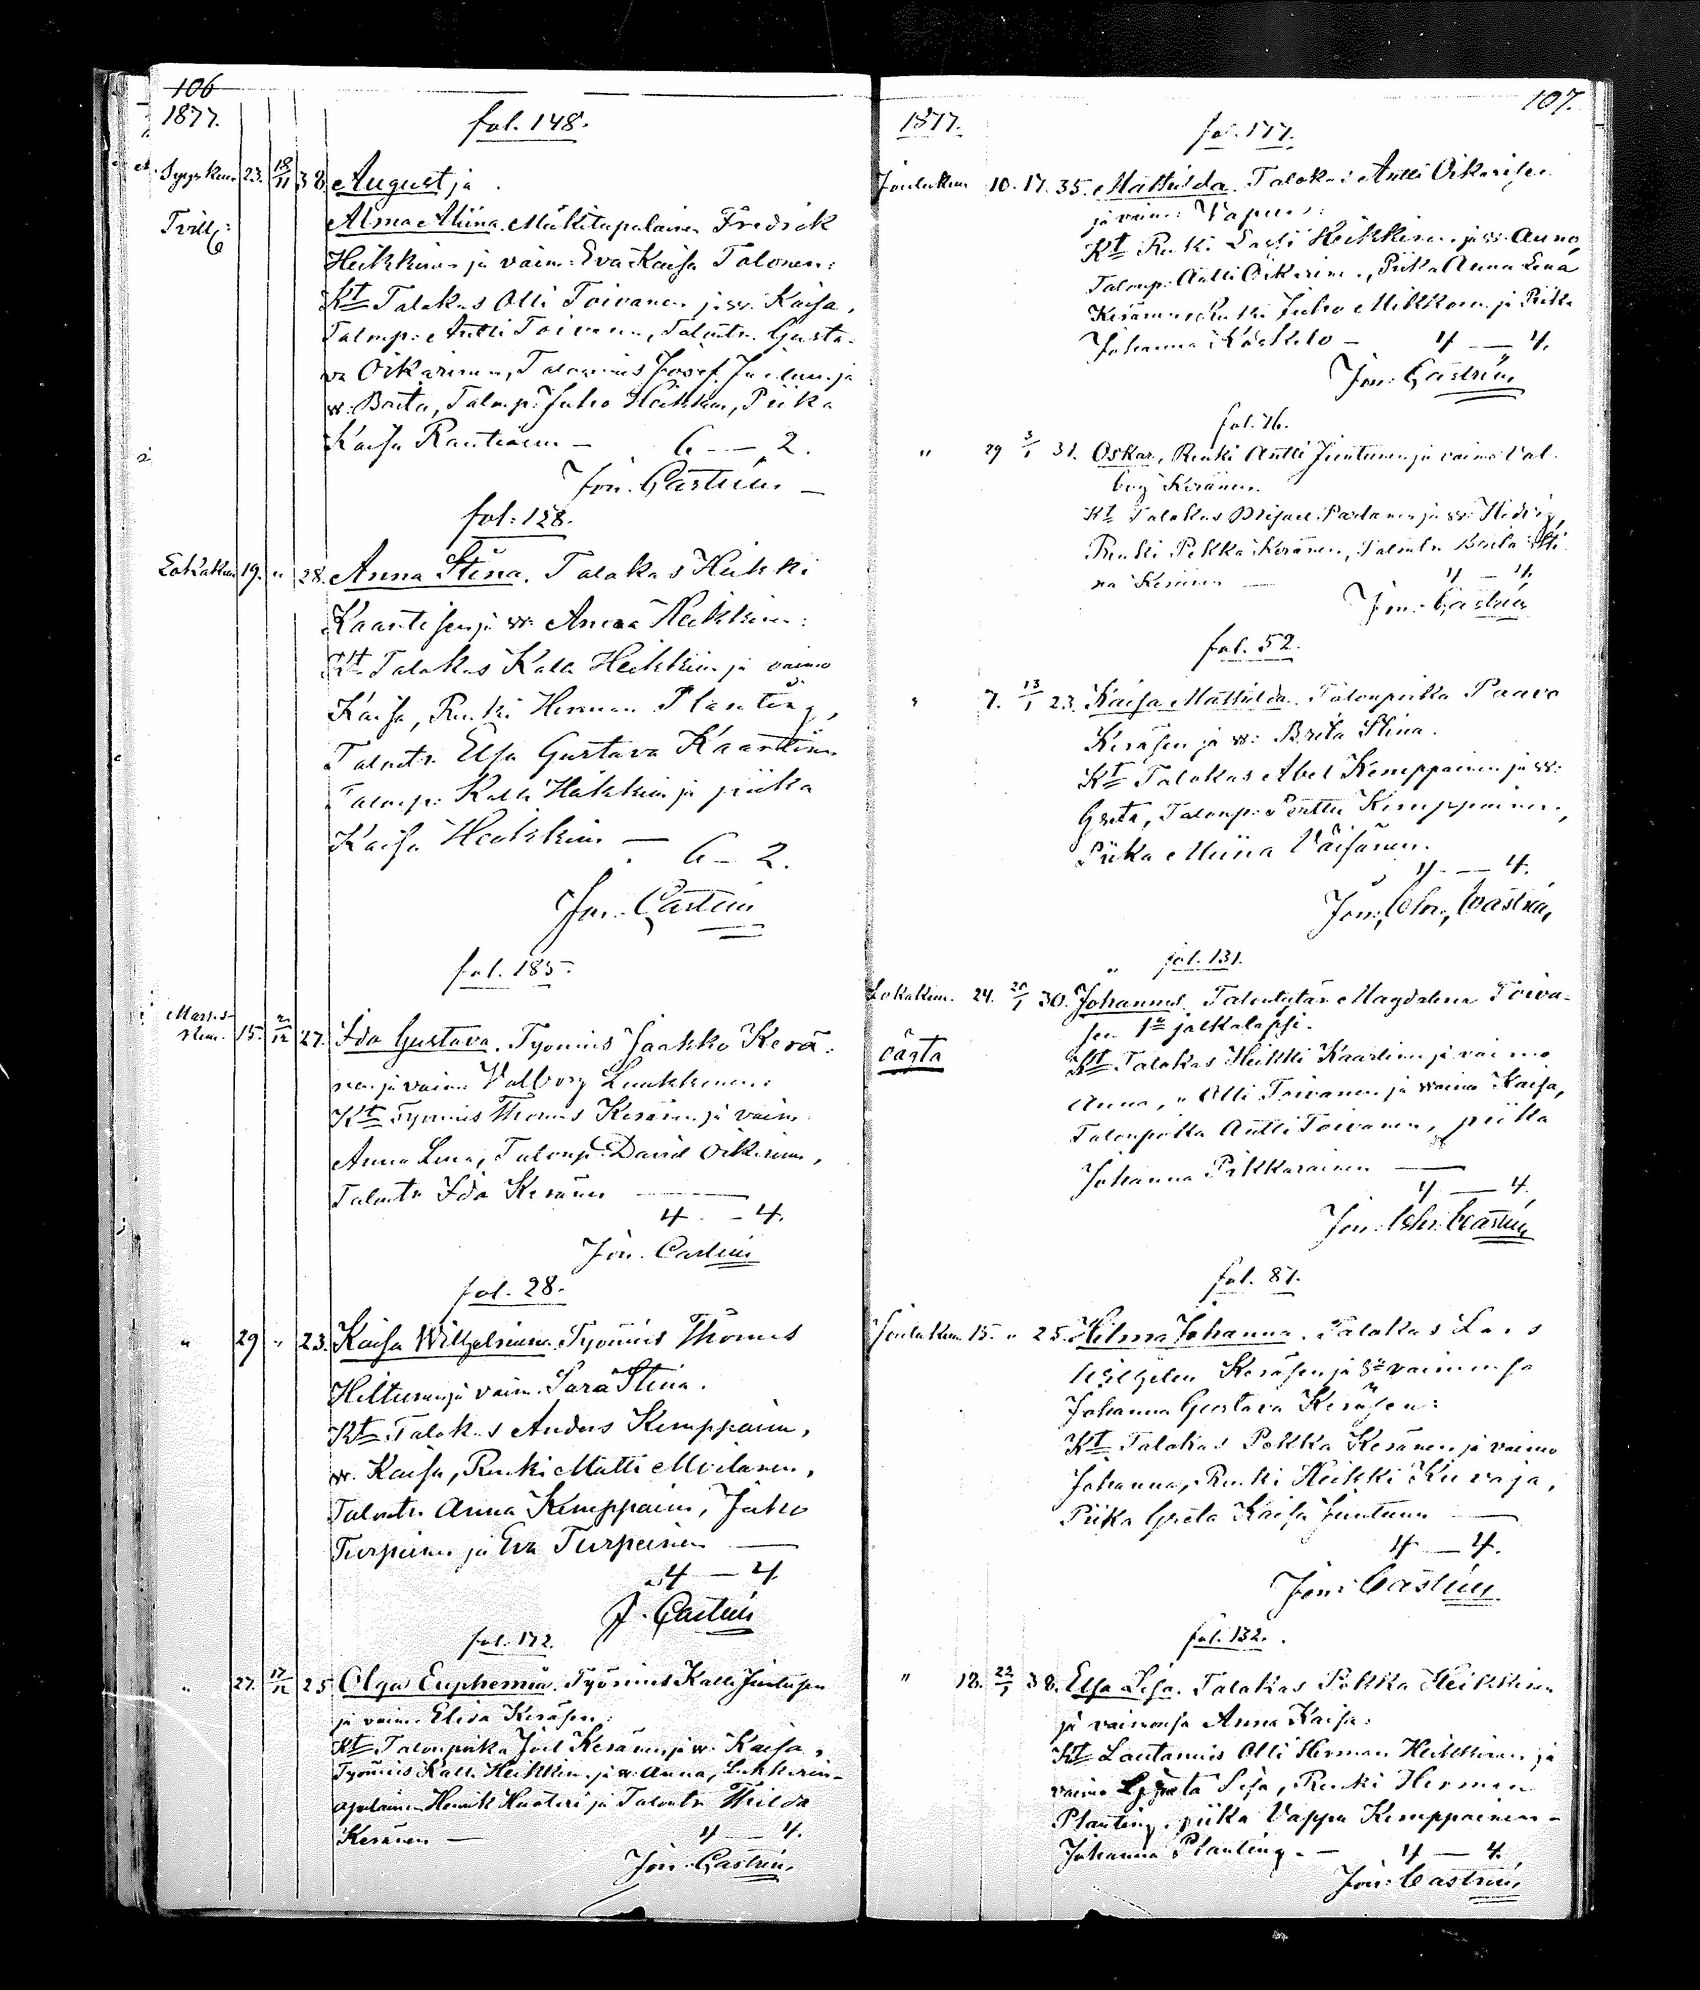 106
1877.
fol. 148.
Syyskuu 23. 18/11 38. August ja
Tvill: Alma Miina. Mäkitupalainen Fredrik
Heikkinen ja vaim: Eva Kaisa Tolonen:
Kt Talokas Olli Toivanen ja w. Kaisa,
Talonp: Antti Toivanen, Talontr. Gusta-
va Oikarinen, Josef ja
w. Brita, Talonp: Juho Heikkinen, Piika
Kaisa Rautiainen — 6 — 2.
Jon. Castrén
fol: 158.
Lokakuu 19. " 28. Anna Stina. Talokas Heikki
Kaartisen ja w. Anna Heikkinen:
Kt Talokas Kalle Heikkinen ja vaimo
Kaisa, Renki Herman Planting,
Talontr. Elsa Gustava Kaartinen
Talonp: Kalle Heikkinen ja piika
Kaisa Heikkinen — 6 — 2.
Jon. Castrén
fol. 185.
Marras-
kuu. 15. 2/12 27. Ida Gustava. Työmies Jaakko Kerä-
nen ja vaim. Valborg Luukkonen:
Kt Työmies Thomas Keränen ja vaim.
Anna Lena, Talonp. David Oikarinen,
Talontr Ida Keränen — 4 — 4.
Jon. Castrén
fol. 28.
" 29 " 23. Kaisa Wilhelmina. Työmies Thomas
Hiltunen ja vaim. Sara Stina.
Kt Talokas Anders Kemppainen,
w. Kaisa, Renki Matti Moilanen,
Talontr. Anna Kemppainen, Juho
Turpeinen ja Eva Turpeinen — 4 — 4.
J. Castrén
fol. 172.
" 27. 17/12 25 Olga Euphemia. Työmies Kalle Juntusen
ja vaim. Elisa Keräsen:
Kt Talonpoika Joel Keränen ja w. Kaisa,
Työmies Kalle Heikkinen ja w. Anna,
Henrik Huoteri ja Talontr Thilda
Keränen — 4 — 4.
Jon. Castrén
107.
1877.
fol. 177.
Joulukuu 10. 17. 35. Mathilda. Talokas Antti Oikarisen
ja vaimo: Vapun:
Kt Renki Heikkinen ja w. Anna,
Talonp. Antti Oikarinen, Piika Anna Lena
Keränen, Renki Juho Mikkonen ja Piika
Johanna Kaskelo — 4 — 4.
Jon: Castrén
fol. 76.
" 29 3/1 31. Oskar, Renki Antti Juntunen ja vaimo Val-
borg Keränen.
Kt Talokas Misael Partanen ja w. Hedvig,
Renki Pekka Keränen, Talontr. Brita Sti-
na Keränen — 4 — 4.
Jon. Castrén
fol. 52.
" 7. 13/1 23. Kaisa Mathilda. Talonpoika Paavo
Keräsen ja w: Brita Stina.
Kt Talokas Abel Kemppainen ja w:
Greta, Talonp: Penttu Kemppainen,
Piika Miina Väisänen.
4 — 4.
Jon. Chr. Castrén,
fol. 131.
Lokakuu. 24. 20/1 30. Johannes. Talontytär Magdalena Toiva-
sen 1n jalkalapsi.
oägta Kt Talokas Heikki Kaartinen ja vaimo
Anna, " Olli Toivanen ja waimo Kaisa,
Talonpoika Antti Toivanen, piika
Johanna Pikkarainen — 4 — 4
Jon. Chr. Castrén
fol. 87.
Joulukuu 15. " 25. Hilma Johanna. Talokas Lars
Wilhelm Keräsen ja 3n vaimonsa
Johanna Gustava Keräsen:
Kt Talokas Pekka Keränen ja vaimo
Johanna, Renki Heikki Kuvaja,
Piika Greta Kaisa Juntunen —
4 — 4.
Jon: Castrén
fol. 132.
" 18. 22/1 38. Elsa Lisa. Talokas Pekka Heikkinen
ja vaimonsa Anna Kaisa:
Kt Lautamies Olli Herman Heikkinen ja
vaimo Greta Lisa, Renki Herman
Planting, piika Vappu Kemppainen –
Johanna Planting. — 4 — 4.
Jon: Castrén,